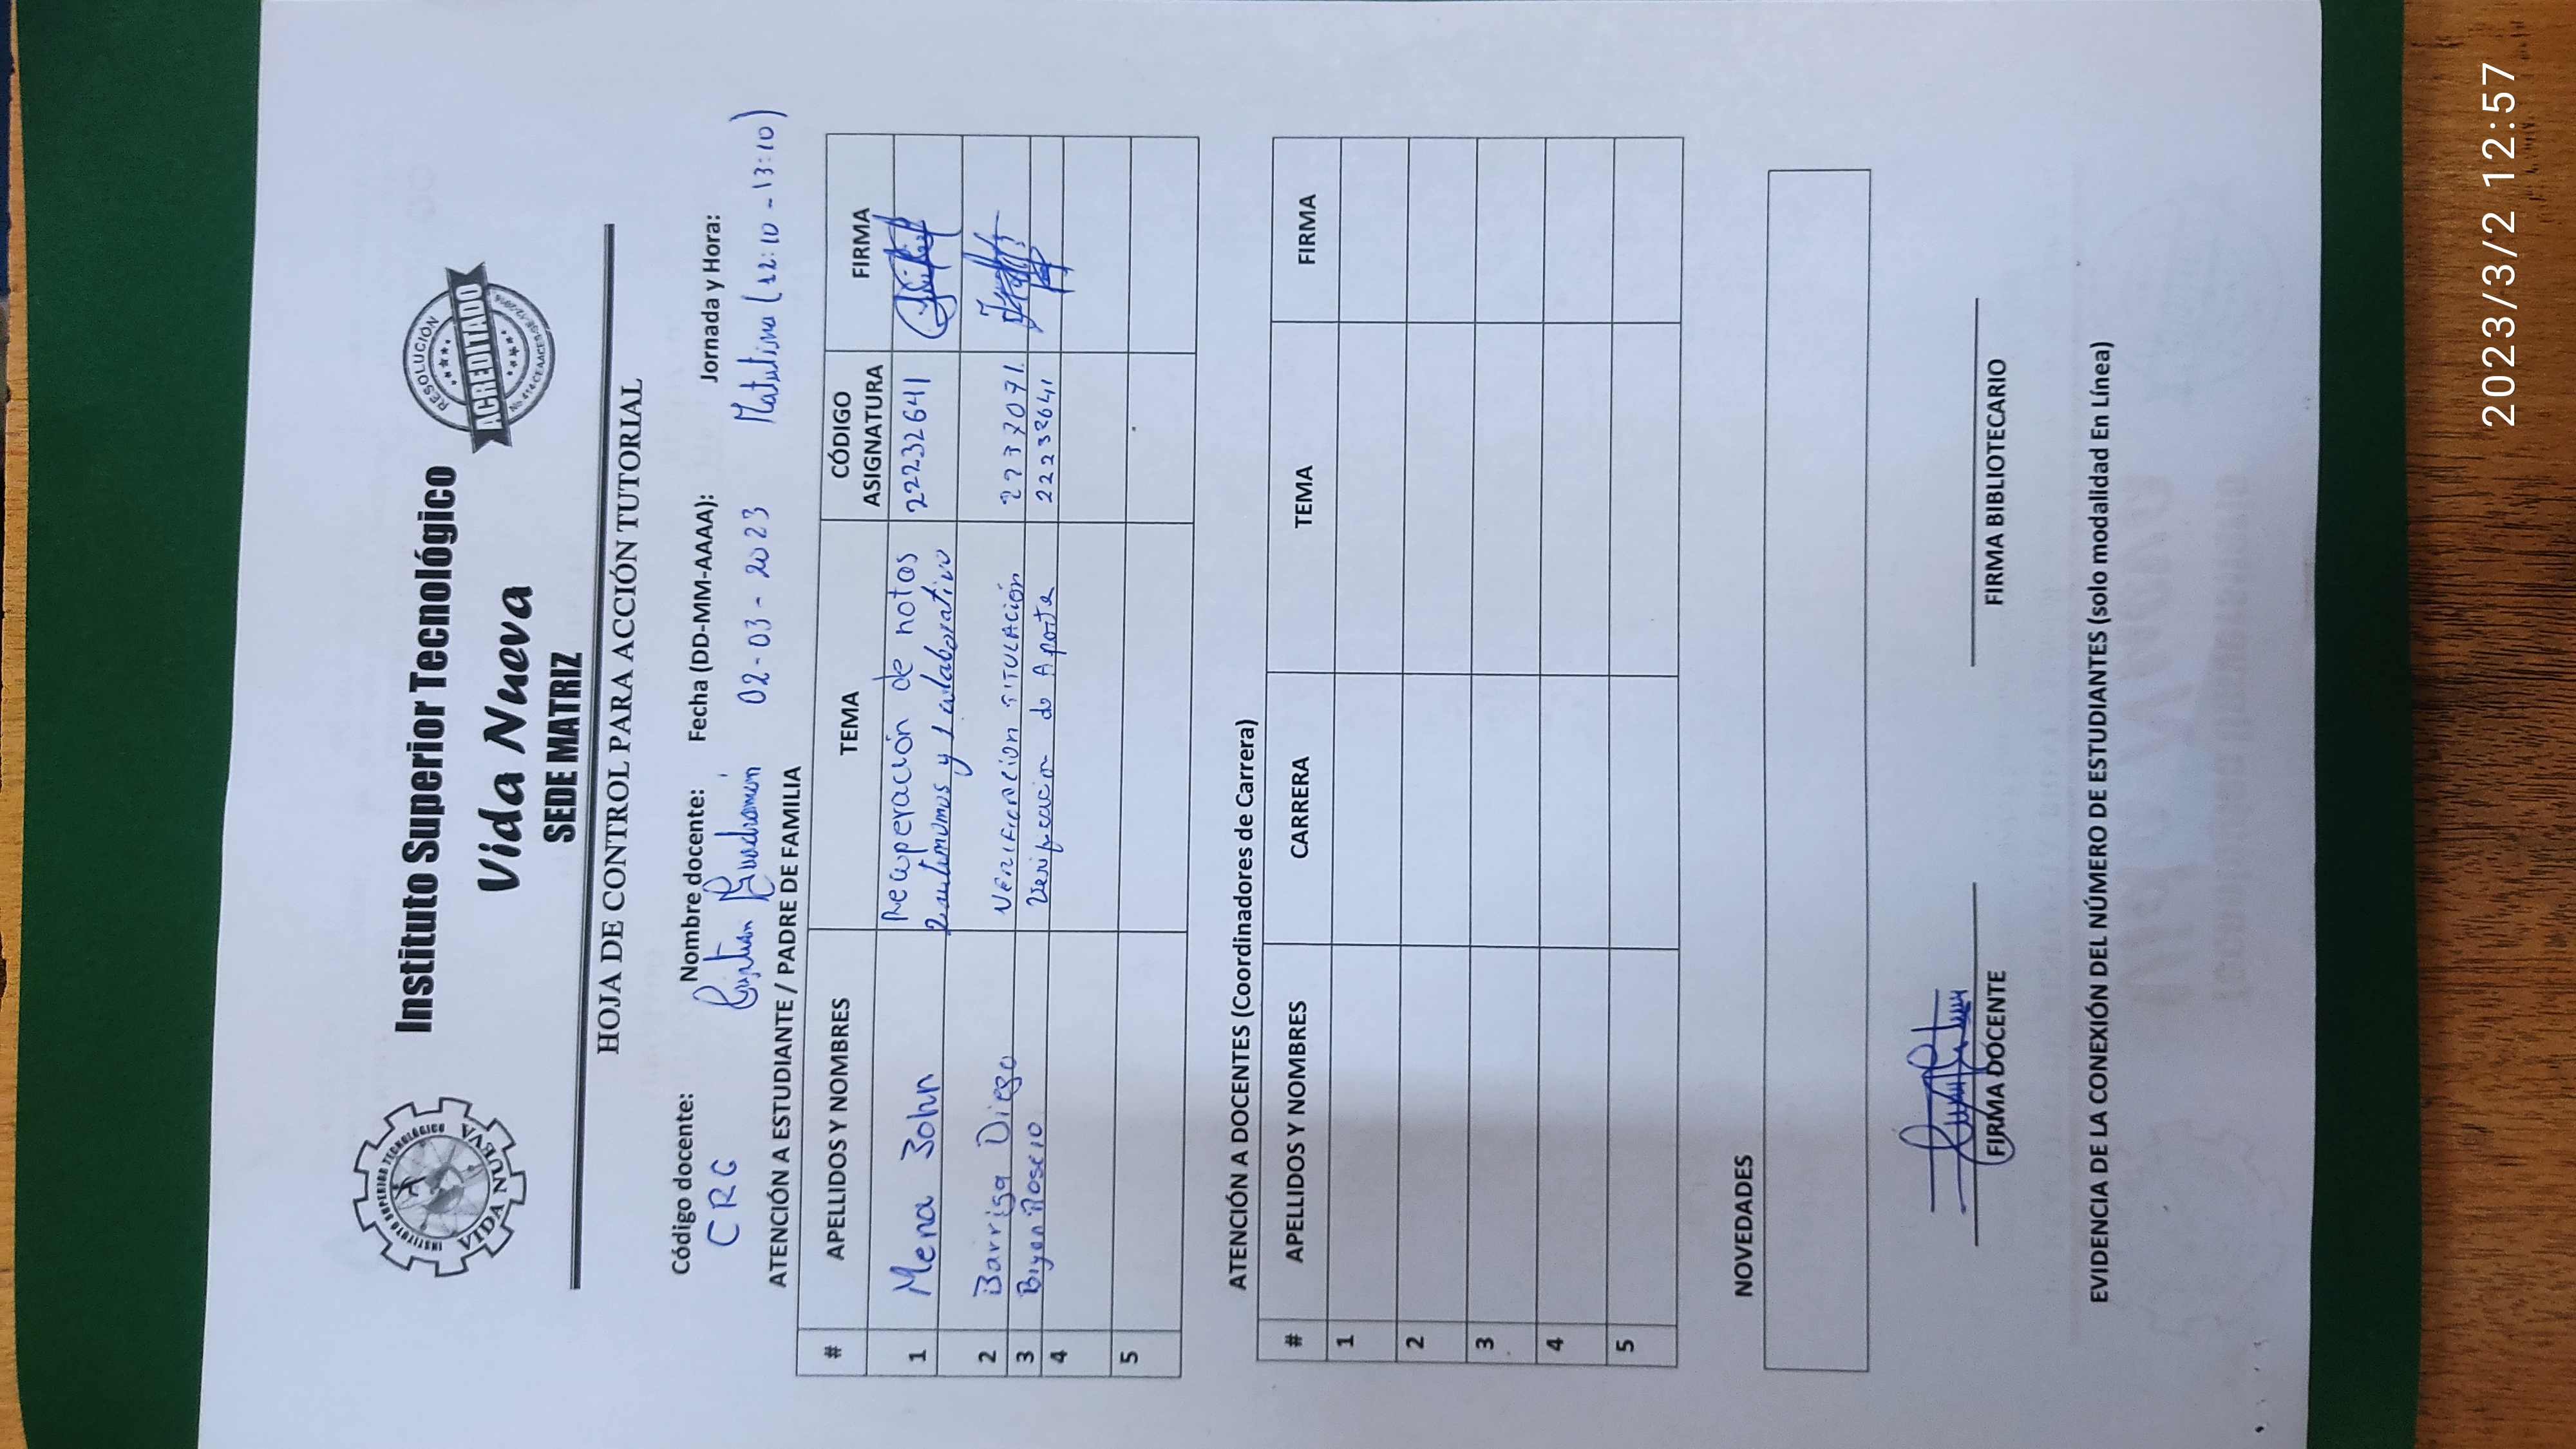 INSTITUTO SUPERIOR TECNOLÓGICO
VIDA NUEVA
Instituto Superior Tecnológico
Vida Nueva
SEDE MATRIZ
RESOLUCIÓN
ACREDITADO
HOJA DE CONTROL PARA ACCIÓN TUTORIAL
Código docente: Nombre docente: Fecha (DD-MM-AAAA): Jornada y Hora:
CRG Cristian Guachamín 02-03-2023 Matutina (12:10 - 13:10)
ATENCIÓN A ESTUDIANTE / PADRE DE FAMILIA
# APELLIDOS Y NOMBRES TEMA CÓDIGO ASIGNATURA FIRMA
1 Mena John Recuperación de notas 22232641
2 autónomos y 1 colaborativo
2 Barriga Diego VERIFICACIÓN TITULACIÓN 2237071
3 Bryan Verificacion de Aporte 22232641
4
5
ATENCIÓN A DOCENTES (Coordinadores de Carrera)
# APELLIDOS Y NOMBRES CARRERA TEMA FIRMA
1
2
3
4
5
NOVEDADES
FIRMA DOCENTE FIRMA BIBLIOTECARIO
EVIDENCIA DE LA CONEXIÓN DEL NÚMERO DE ESTUDIANTES (solo modalidad En Línea)
2023/3/2 12:57